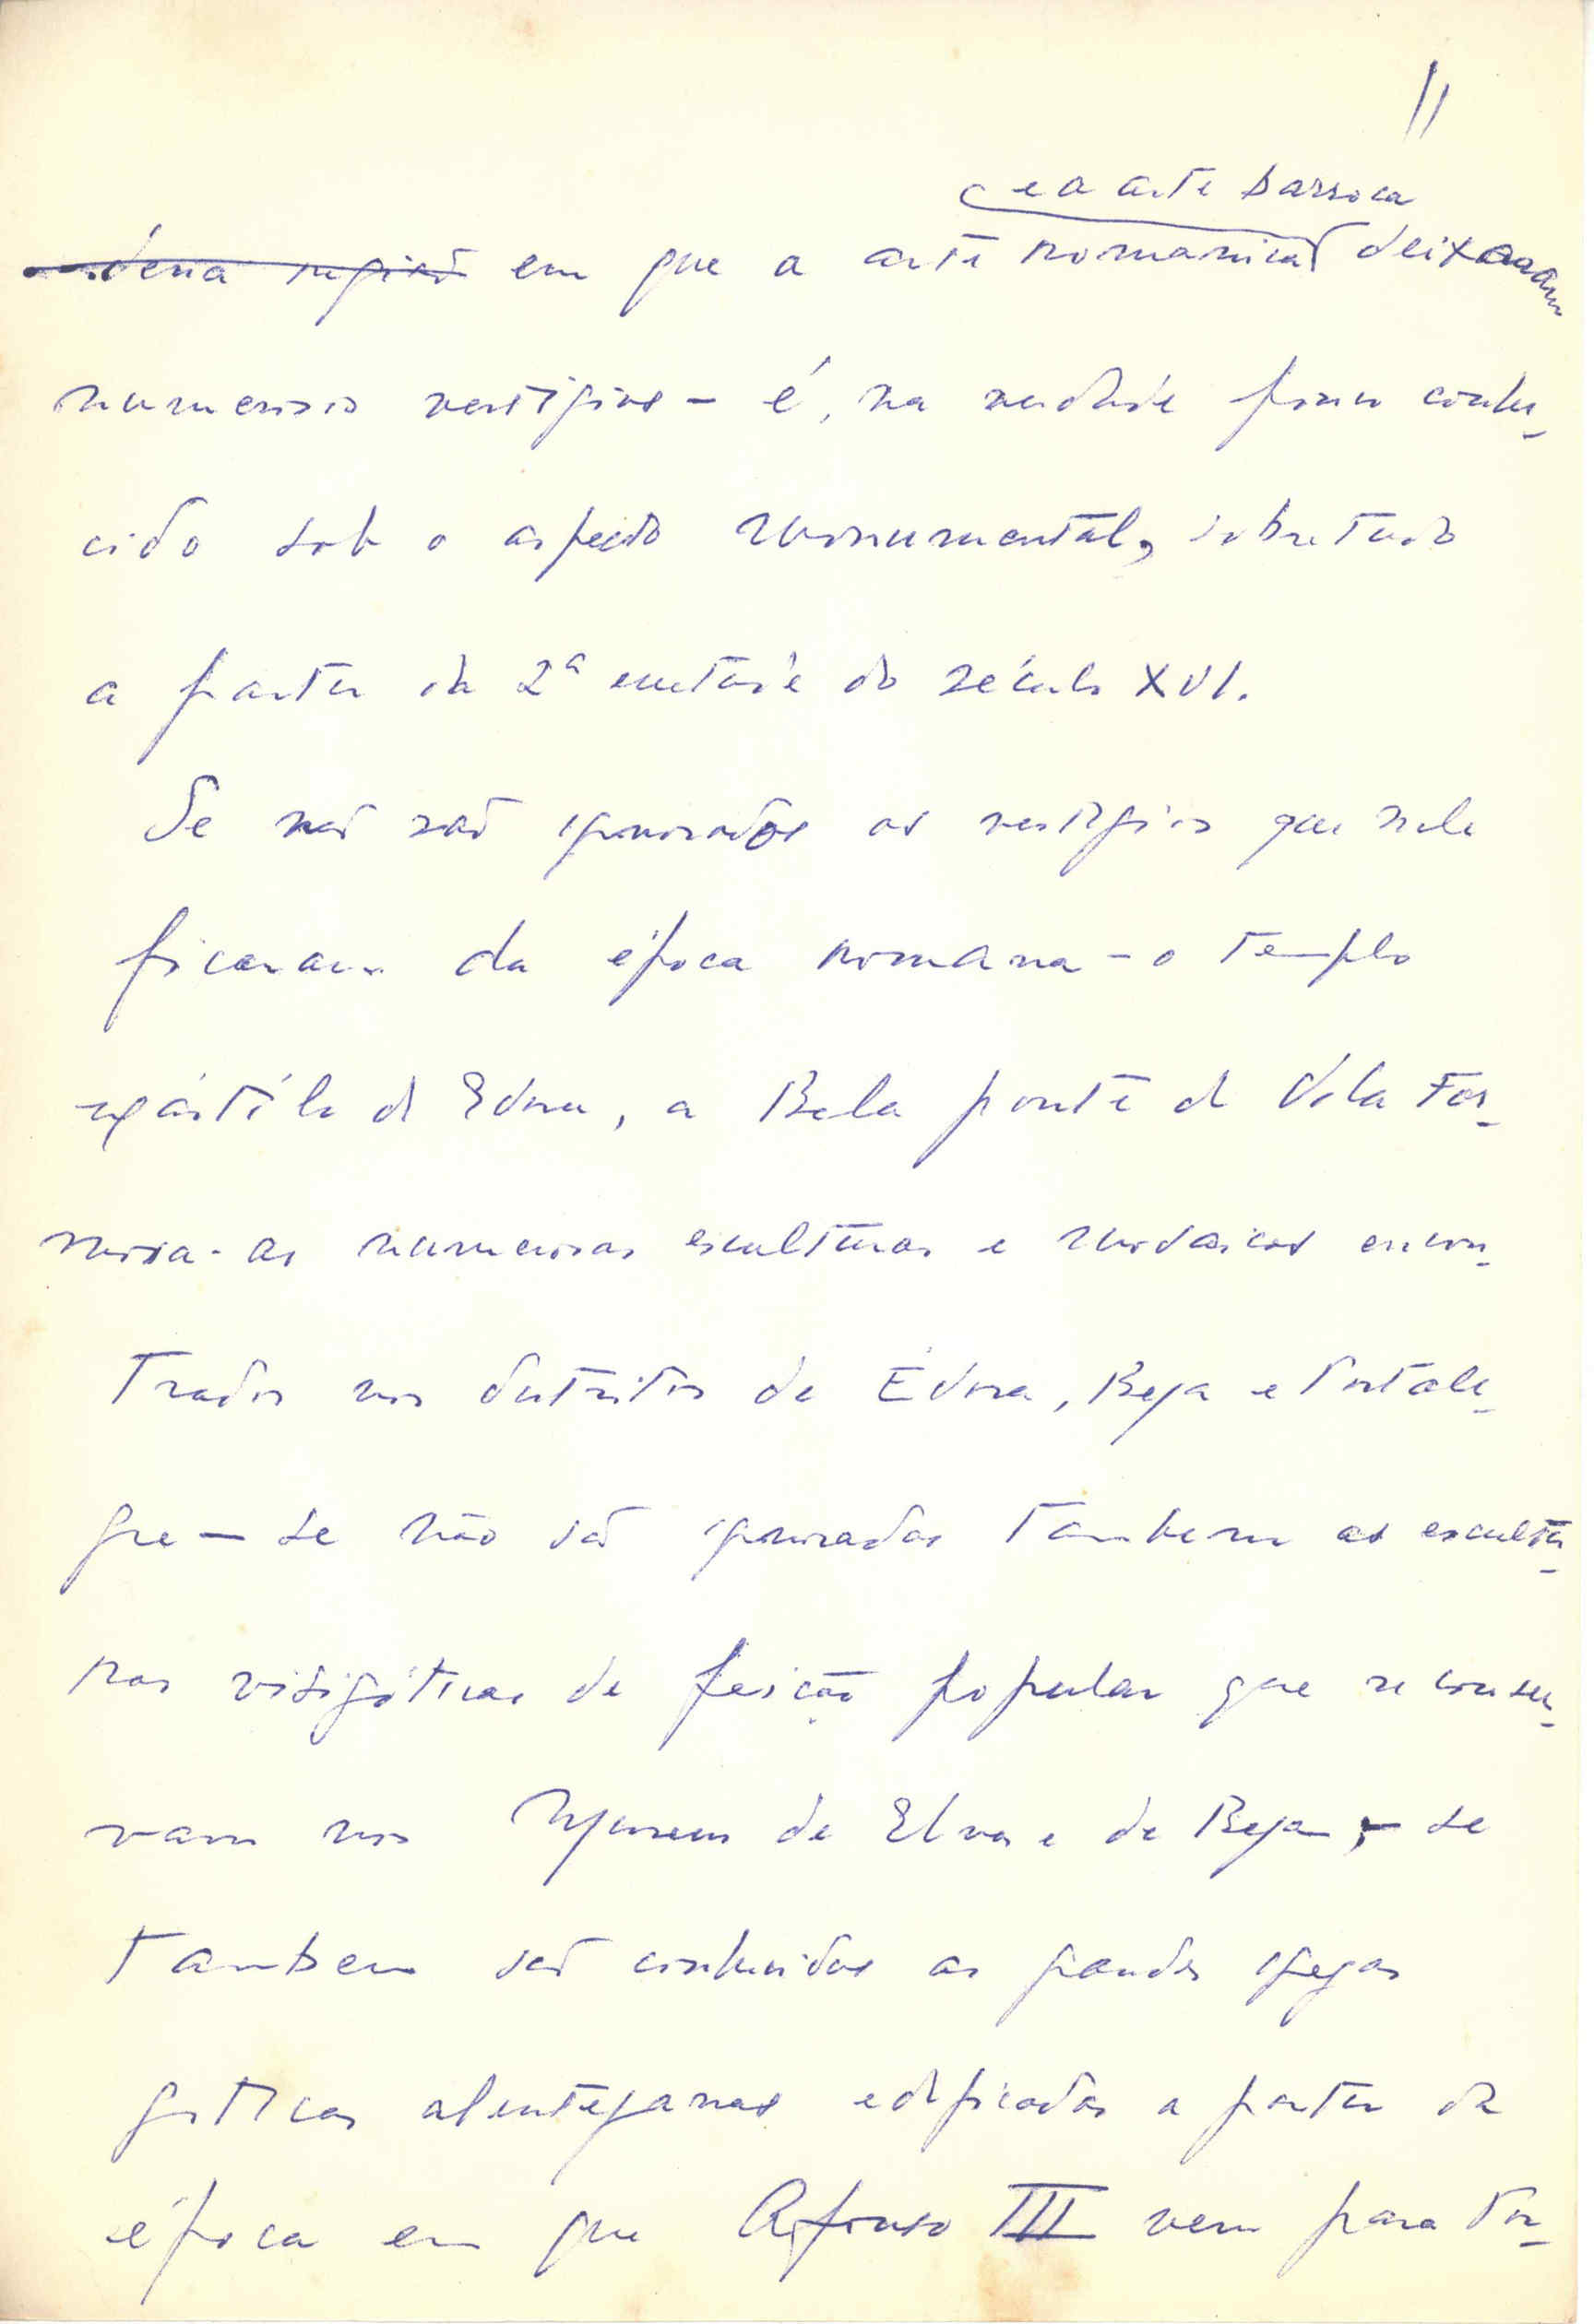 11
e a arte barroca
desta região em que a arte romanica deixaram
numerosos vestigios - é, na verdade pouco conhe-
cido sob o aspecto monumental, sobretudo
a partir da 2ª metade do século XVI.
Se não são ignorados os vestigios que nele
ficaram da época romana - o templo
de Evora, a Bela ponte de Vila For-
mosa - as numerosas esculturas e mosaicos encon-
trados nos distritos de Évora, Beja e Portale-
gre - se não são ignoradas tambem as escultu-
ras visigóticas de feição popular que se conser-
vam nos Museus de Elvas e de Beja, - se
tambem são conhecidas as grandes igrejas
goticas alentejanas edificadas a partir da
época em que Afonso III vem para Por-